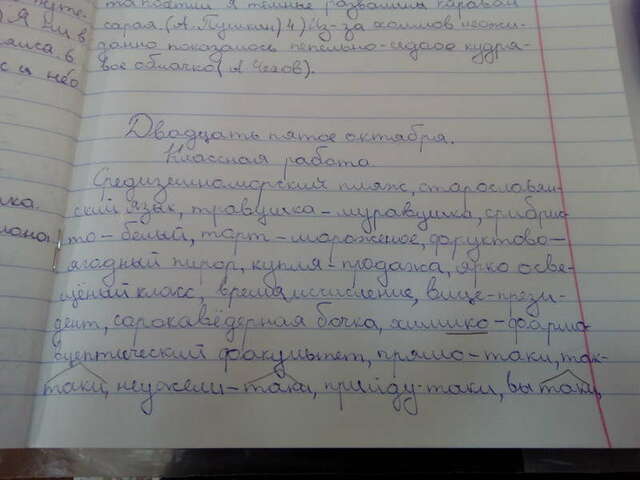 та постим я темные развалины караван
сарая. (А. Пушкин) 4) Из-за холмов неожи-
данно показалось пепельно-седое кудря-
вое облачко (А Чехов).
Двадцать пятое октября.
Классная работа
Средиземноморский пляж, старославян-
ский язык, травушка-муравушка, срибрис
то-белый, торт-мороженое, форуктово-
ягодный пирог, купля-продажа, ярко осве-
щёный класс, времяисчисление, вице-прези-
дент, сорокаведерная бочка, химико-фарма
вцептический факультет, прямо-таки, так-
таки, неужели-таки, прийду-таки, вы таки,